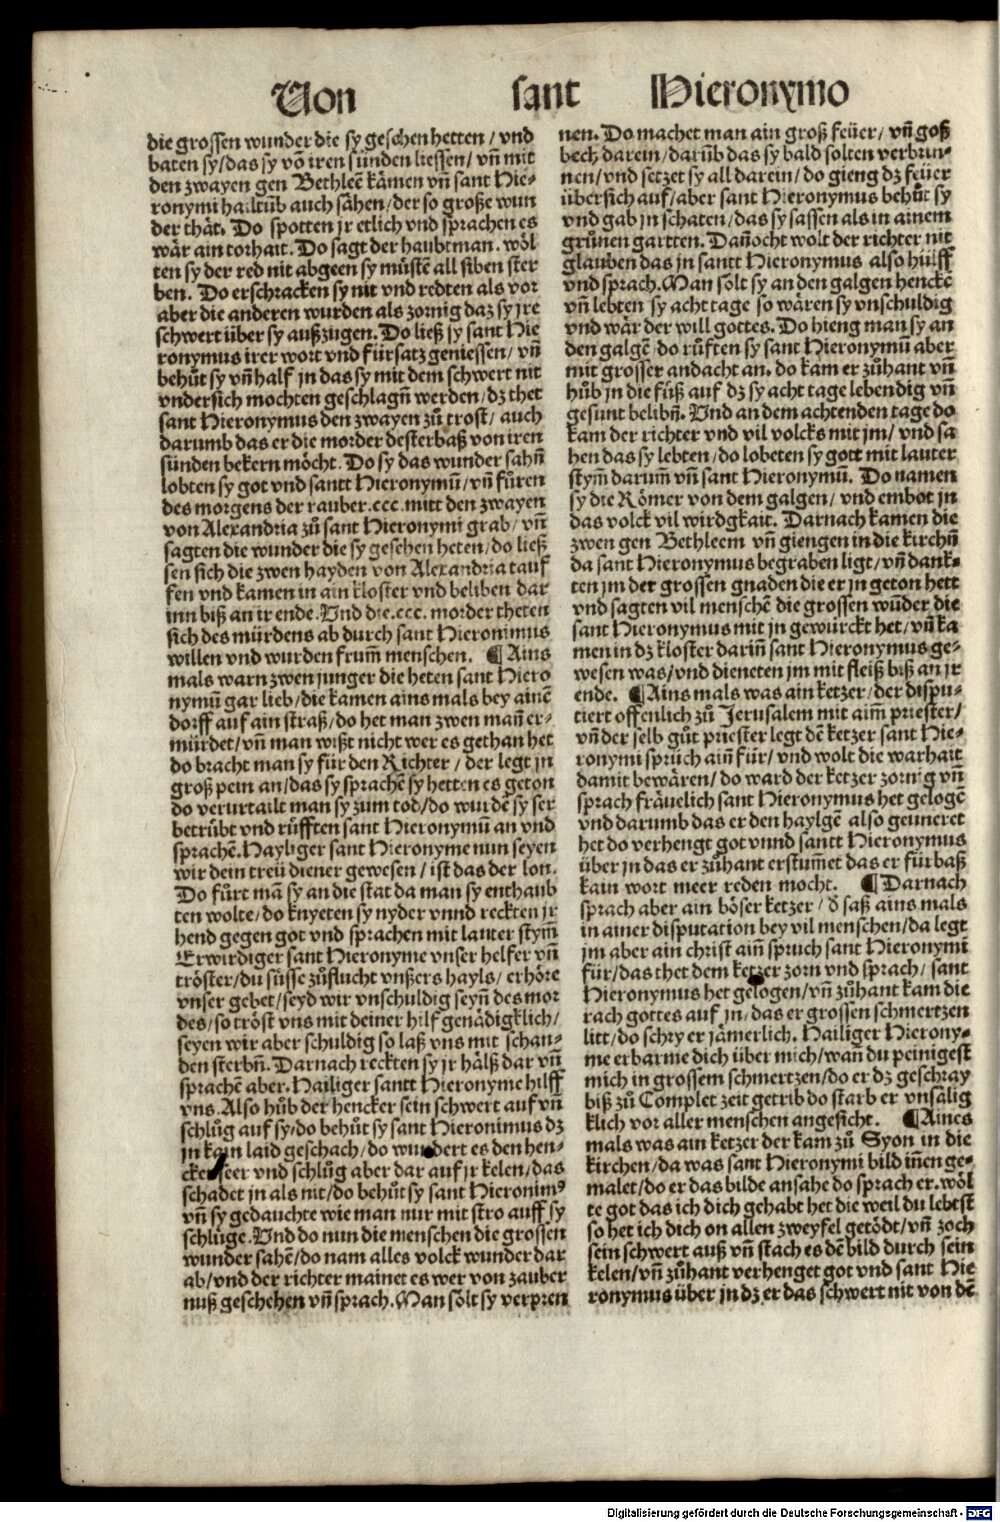 Von sant Hieronymo
die grossen wunder die sy gesehen hetten / vnd
baten sy/das sy võ iren sünden liessen/ vñ mit
den zwayen gen Bethleẽ kämen vñ sant Hie-
ronymi hailtůb auch sähen/der so große wun
der thät. Do spotten jr etlich vnd sprachen es
wär ain torhait. Do sagt der haubtman. wöl
ten sy der red nit abgeen sy müstẽ all siben ster
ben. Do erschracken sy nit vnd redten als vor
aber die anderen wurden als zornig daz sy jre
schwert über sy außzugen. Do ließ sy sant Hie
ronymus irer wort vnd fürsatz geniessen/ vñ
behůt sy vñ half jn das sy mit dem schwert nit
vndersich mochten geschlagñ werden/dz thet
sant Hieronymus den zwayen zů trost/ auch
darumb das er die morder desterbaß von iren
sünden bekern möcht. Do sy das wunder sahñ
lobten sy got vnd santt Hieronymũ/vñ fůren
des morgens der rauber.ccc.mitt den zwayen
von Alexandria zů sant Hieronymi grab/ vñ
sagten die wunder die sy gesehen heten/do ließ
sen sich die zwen hayden von Alexandria tauf
fen vnd kamen in ain kloster vnd beliben dar
inn biß an ir ende. Vnd die.ccc. morder theten
sich des mürdens ab durch sant Hieronimus
willen vnd wurden frum̃ menschen. ¶ Ains
mals warn zwen junger die heten sant Hiero
nymũ gar lieb/die kamen ains mals bey ainẽ
dorff auf ain straß/do het man zwen mañ er-
mürdet/vñ man wißt nicht wer es gethan het
do bracht man sy für den Richter / der legt jn
groß pein an/das sy sprachẽ sy hetten es geton
do verurtailt man sy zum tod/do wurdẽ sy ser
betrübt vnd růfften sant Hieronymũ an vnd
sprachẽ. Hayliger sant Hieronyme nun seyen
wir dein treü diener gewesen / ist das der lon.
Do fůrt mã sy an die stat da man sy enthaub
ten wolte/do knyeten sy nyder vnnd reckten jr
hend gegen got vnd sprachen mit lauter stym̃
Erwirdiger sant Hieronyme vnser helfer vñ
tröster/du süsse zůflucht vnßers hayls/ erhöre
vnser gebet/seyd wir vnschuldig seyñ des mor
des/so tröst vns mit deiner hilf genädigklich/
seyen wir aber schuldig so laß vns mit schan-
den sterbñ. Darnach reckten sy jr hälß dar vñ
sprachẽ aber. Hailiger santt Hieronyme hilff
vns. Also hůb der hencker sein schwert auf vñ
schlůg auf sy/do behůt sy sant Hieronimus dz
jn kain laid geschach/do wundert es den hen-
cker seer vnd schlůg aber dar auf jr kelen/das
schadet jn als nit/do behůt sy sant Hieronimꝰ
vñ sy gedauchte wie man nur mit stro auff sy
schlůge. Vnd do nun die menschen die grossen
wunder sahẽ/do nam alles volck wunder dar
ab/vnd der richter mainet es wer von zauber
nuß geschehen vñ sprach. Man sölt sy verpren
nen. Do machet man ain groß feüer/ vñ goß
bech darein/darüb das sy bald solten verbrin-
nen/vnd setzet sy all darein/do gieng dz feüer
übersich auf/aber sant Hieronymus behůt sy
vnd gab jn schaten/das sy sassen als in ainem
grůnen gartten. Dañocht wolt der richter nit
glauben das jn santt Hieronymus also hülff
vnd sprach. Man sölt sy an den galgen henckẽ
vñ lebten sy acht tage so wären sy vnschuldig
vnd wär der will gottes. Do hieng man sy an
den galgẽ/do růften sy sant Hieronymũ aber
mit grosser andacht an. do kam er zůhant vñ
hůb jn die füß auf dz sy acht tage lebendig vñ
gesunt belibñ. Vnd an dem achtenden tage do
kam der richter vnd vil volcks mit jm/ vnd sa
hen das sy lebten/do lobeten sy gott mit lauter
stym̃ darum̃ vñ sant Hieronymũ. Do namen
sy die Römer von dem galgen/ vnd embot jn
das volck vil wirdgkait. Darnach kamen die
zwen gen Bethleem vñ giengen in die kirchñ
da sant Hieronymus begraben ligt/vñ danck-
ten jm der grossen gnaden die er jn geton hett
vnd sagten vil menschẽ die grossen wũder die
sant Hieronymus mit jn gewürckt het/vñ ka
men in dz kloster dariñ sant Hieronymus ge-
wesen was/vnd dieneten jm mit fleiß biß an jr
ende. ¶ Ains mals was ain ketzer/der dispu-
tiert offenlich zů Jerusalem mit aim̃ priester/
vñ der selb gůt priester legt dẽ ketzer sant Hie-
ronymi sprüch aiñ für/ vnd wolt die warhait
damit bewären/do ward der ketzer zornig vñ
sprach fräuelich sant Hieronymus het gelogẽ
vnd darumb das er den haylgẽ also geuneret
het do verhengt got vnnd santt Hieronymus
über jn das er zůhant erstum̃et das er fürbaß
kain wort meer reden mocht. ¶ Darnach
sprach aber ain böser ketzer/ ð saß ains mals
in ainer disputation bey vil menschen/da legt
jm aber ain christ aiñ spruch sant Hieronymi
für/das thet dem ketzer zorn vnd sprach/ sant
Hieronymus het gelogen/vñ zůhant kam die
rach gottes auf jn/das er grossen schmertzen
litt/do schry er jämerlich. Hailiger Hierony-
me erbarme dich über mich/wañ du peinigest
mich in grossem schmertzen/do er dz geschray
biß zů Complet zeit getrib do starb er vnsälig
klich vor aller menschen angesicht. ¶ Aines
mals was ain ketzer der kam zů Syon in die
kirchen/da was sant Hieronymi bild iñen ge-
malet/do er das bilde ansahe do sprach er. wöl
te got das ich dich gehabt het die weil du lebtst
so het ich dich on allen zweyfel getödt/vñ zoch
sein schwert auß vñ stach es dẽ bild durch sein
kelen/vñ zůhant verhenget got vnd sant Hie
ronymus über jn dz er das schwert nit von dẽ
Digitalisierung gefördert durch die Deutsche Forschungsgemeinschaft - DFG